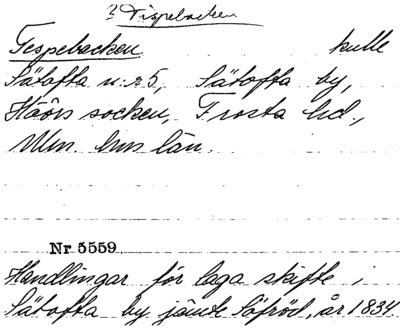 ? Tispebacken
Tespebacken kulle
Sätofta n:r 5, Sätofta by,
Höörs socken, Frosta hd.,
Mlm. hus län.
Nr 5559
Handlingar för laga skifte i
Sätofta by jämte Söfröd, år 1834